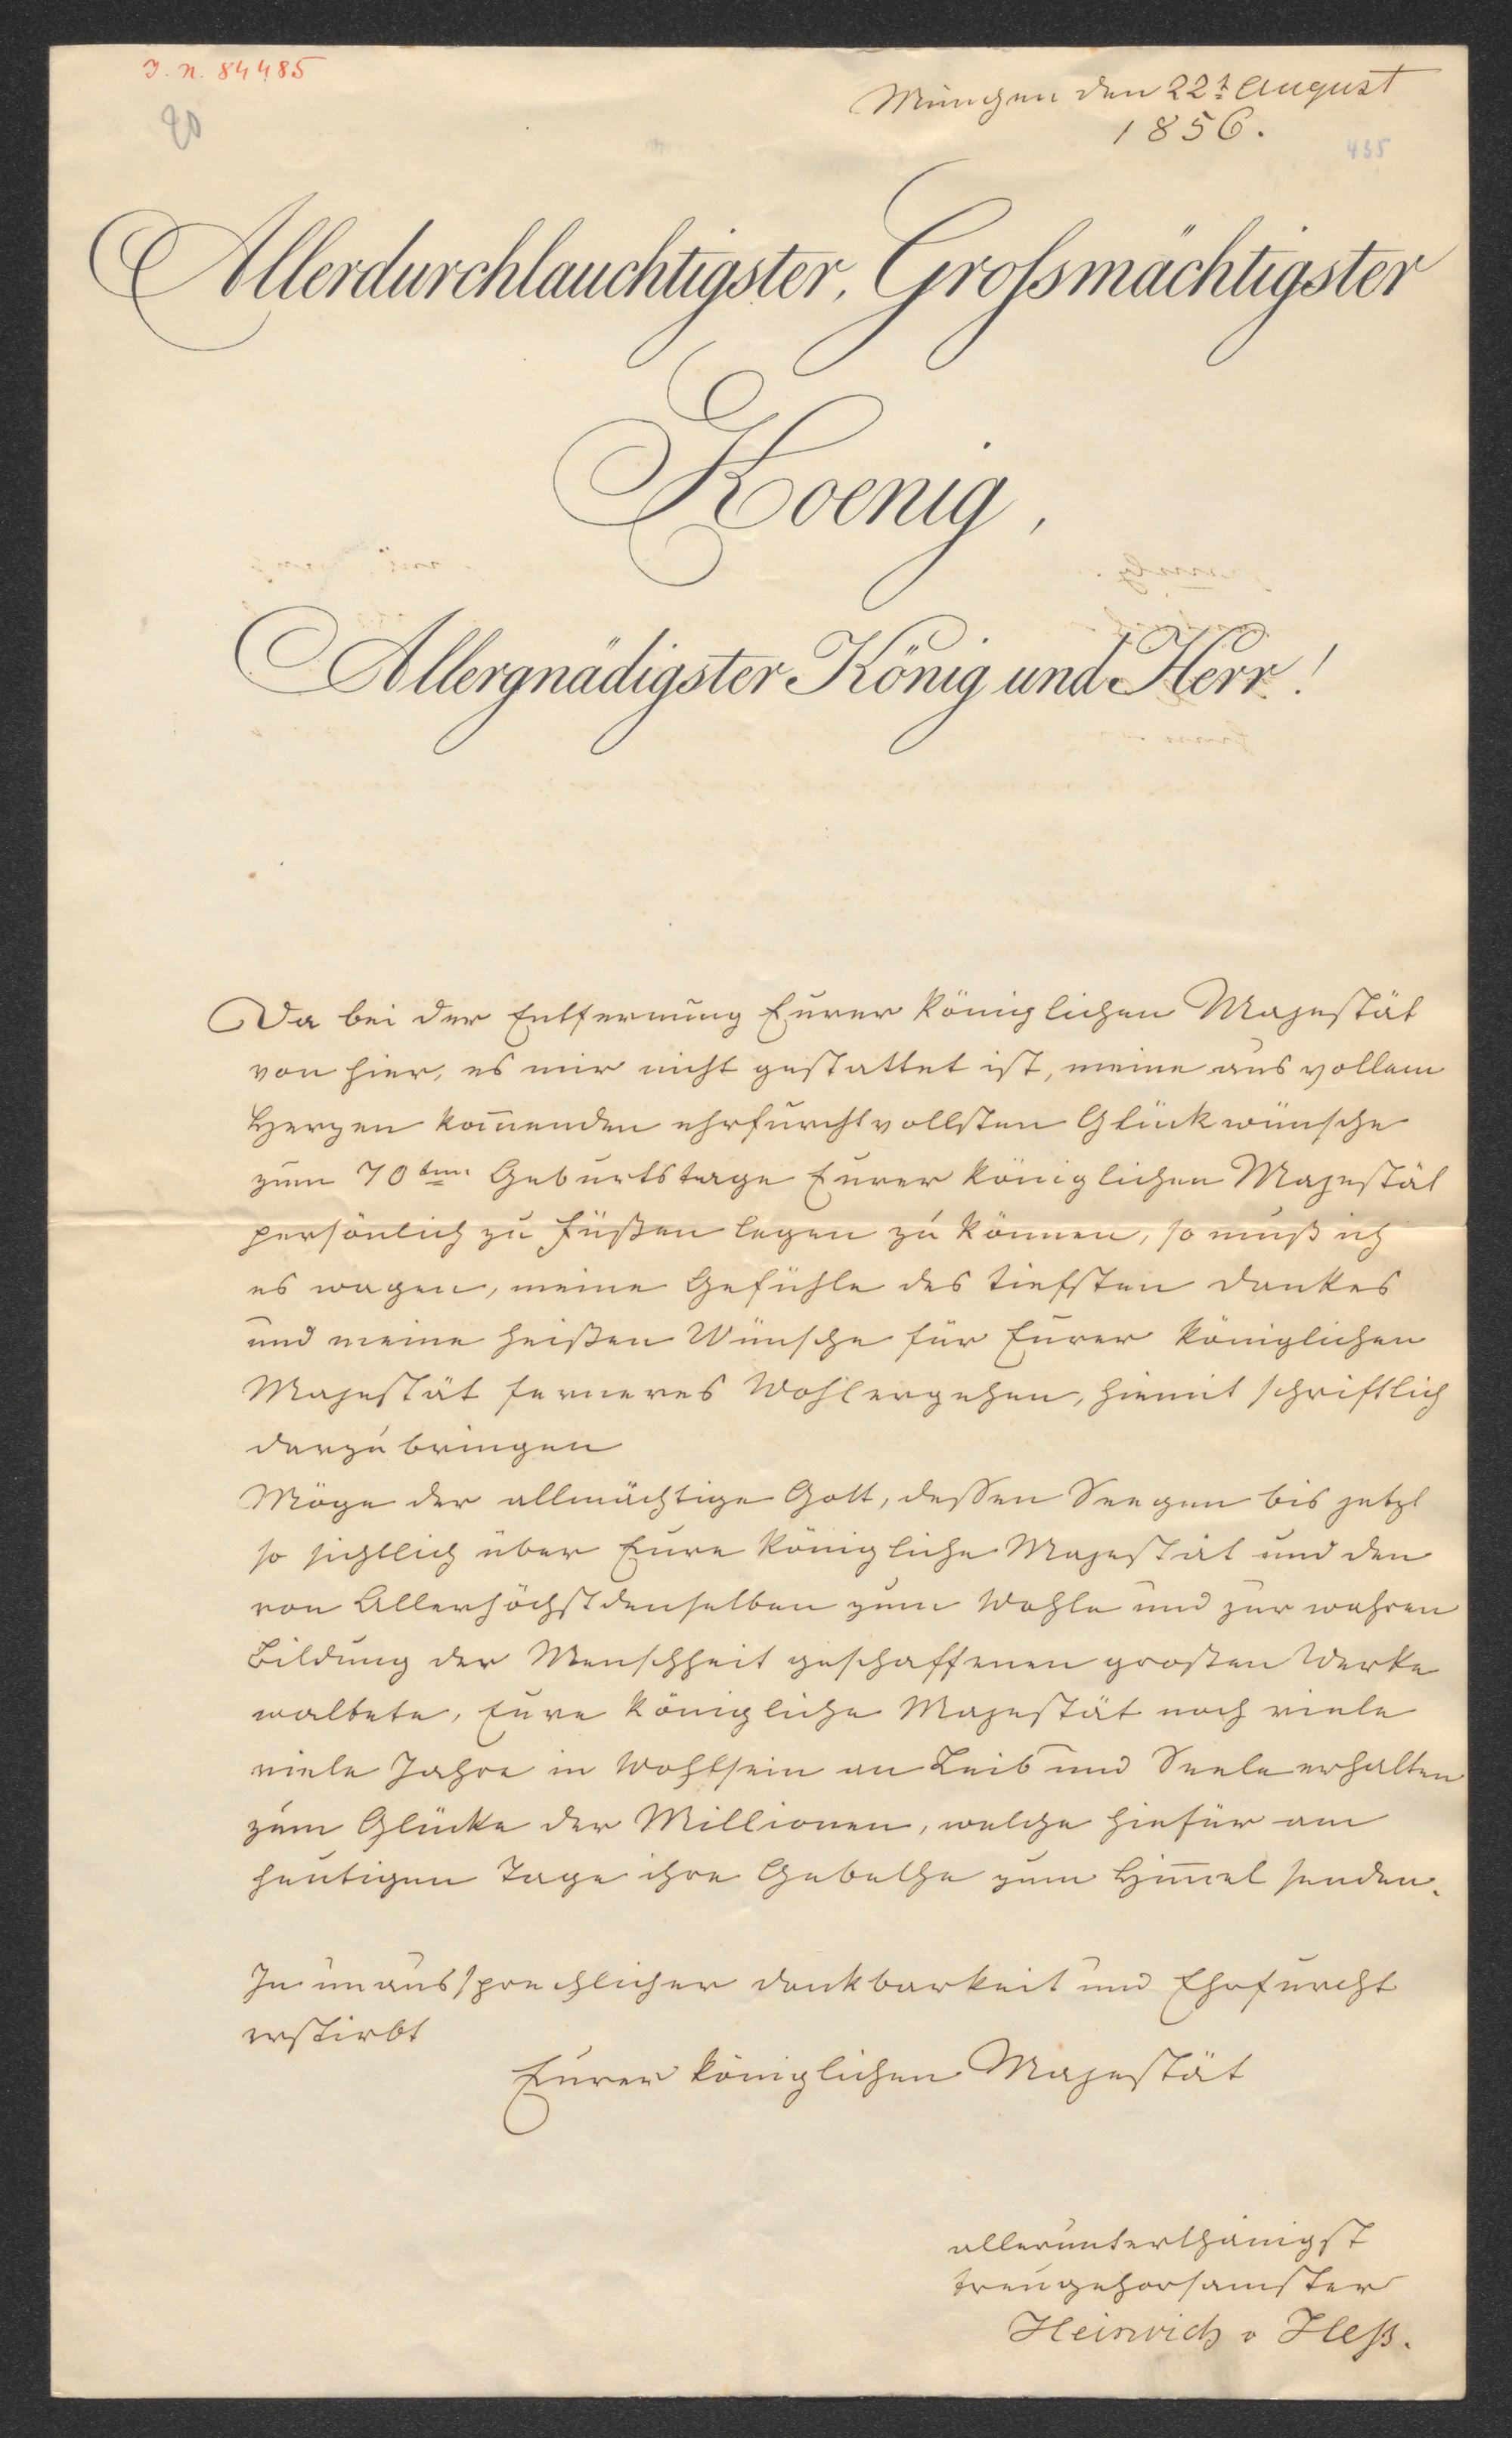 J. N. 84485
20
München den 22t August
1856.
435
Allerdurchlauchtigster, Grossmächtigster
Koenig,
Allergnädigster König und Herr!
Da bei der Entfernung Eurer Königlichen Majestät
von hier, es mir nicht gestattet ist, meine aus vollem
Herzen kom̅enden ehrfurchtvollsten Glückwünsche
zum 70ten Geburtstage Eurer Königlichen Majestät
persönlich zu Füßen legen zu können, so muß ich
es wagen, meine Gefühle des tiefsten Dankes
und meine heißen Wünsche für Eurer Königlichen
Majestät ferneres Wohlergehen, hiemit schriftlich
darzubringen
Möge der allmächtige Gott, dessen Seegen bis jetzt
so sichtlich über Eure Königliche Majestät und den
von Allerhöchstdenselben zum Wohle und zur wahren
Bildung der Menschheit geschaffenen großen Werke
waltete, Eure Königliche Majestät noch viele
viele Jahre in Wohlsein an Leib und Seele erhalten
zum Glücke der Millionen, welche hiefür am
heutigen Tage ihre Gebethe zum Him̅el senden.
In unaussprechlicher Dankbarkeit und Ehrfurcht
erstirbt
Eurer Königlichen Majestät
allerunterthänigst
treugehorsamster
Heinrich v Heß.